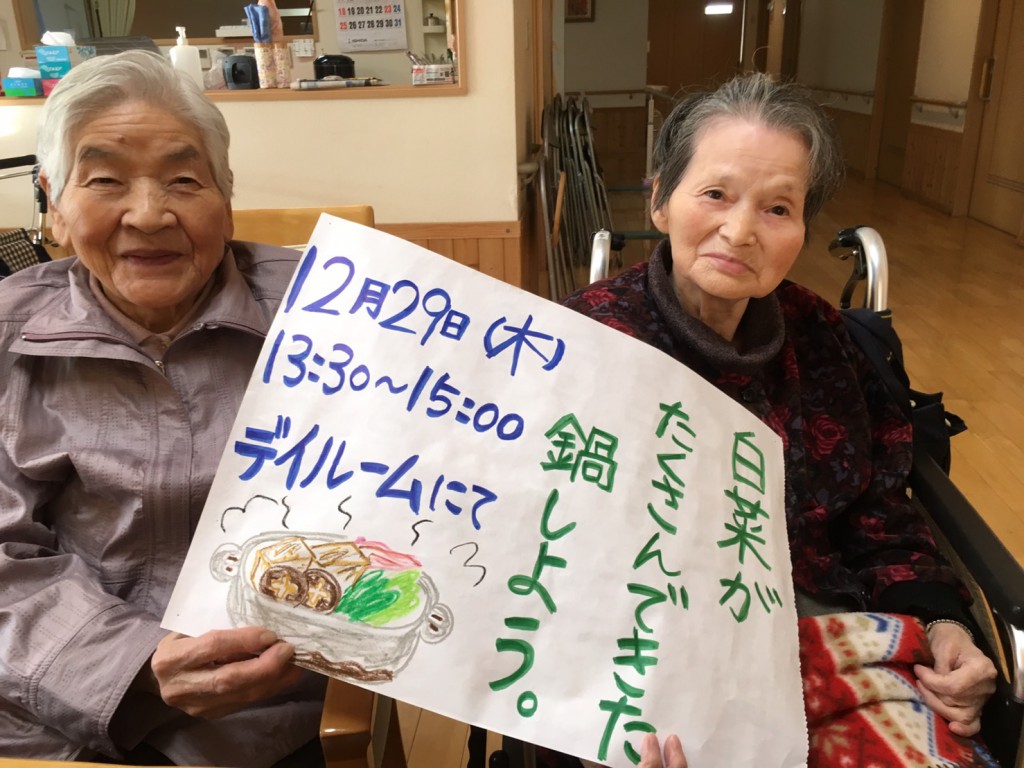 12月29日(木)
13:30～15:00
デイルームにて
白菜が
たくさんでできた
鍋しよう。
18 19 20 21 22 23 24
25 26 27 28 29 30 31